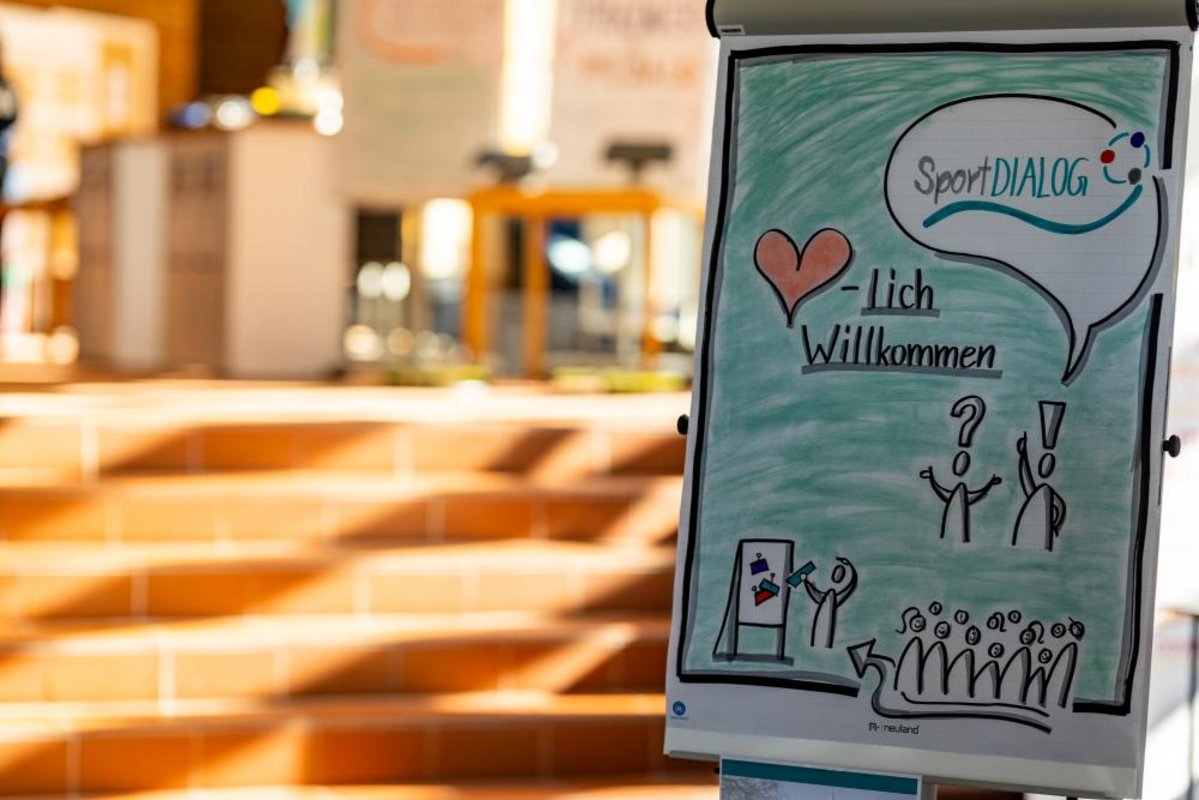 SportDIALOG
-lich
Willkommen
?
!
neuland